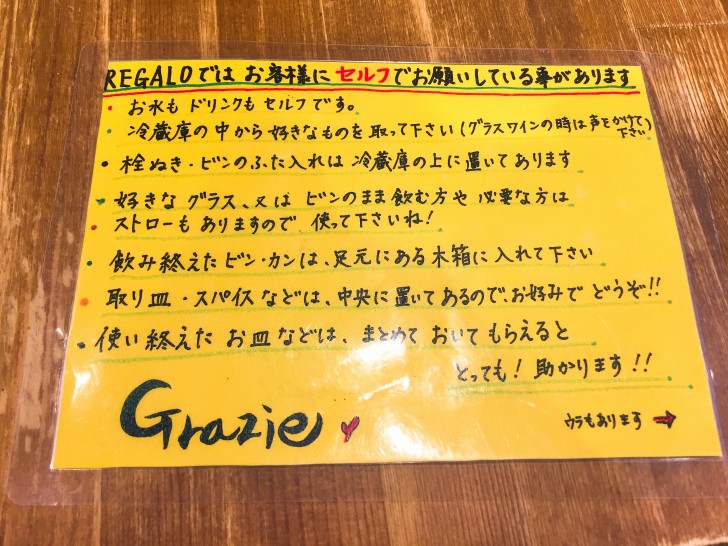 REGALOでは お客様に セルフでお願いしている事があります
・お水も ドリンクも セルフです。
・冷蔵庫の中から好きなものを取って下さい(グラスワインの時は声をかけて下さい)
・栓ぬき・ビンのふた入れは 冷蔵庫の上に置いてあります
・好きな グラス、又は ビンのまま飲む方や 必要な方は
・ストローも ありますので 使って下さいね!
・飲み終えたビン・カンは、足元にある木箱に入れて下さい
・取り皿・スパイスなどは、中央に置いてあるので、お好みで どうぞ!!
・使い終えた お皿などは、まとめて おいて もらえると
とっても! 助かります!!
Grazie
ウラもあります →